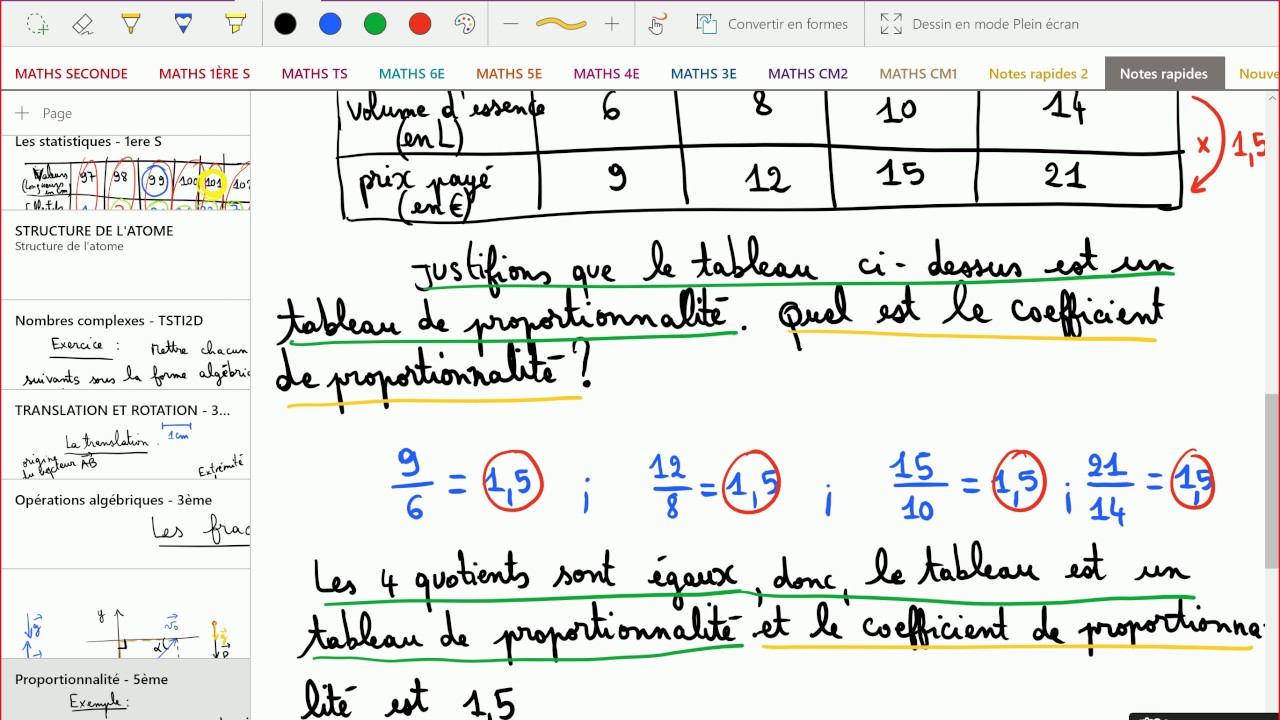 Convertir en formes
Dessin en mode Plein écran
MATHS SECONDE MATHS 1ÈRE S MATHS TS MATHS 6E MATHS 5E MATHS 4E MATHS 3E MATHS CM2 MATHS CM1 Notes rapides 2 Notes rapides Nouve
Page
Les statistiques - 1ere S
Valeurs 97 98 99 100 101 102
STRUCTURE DE L'ATOME
Structure de l'atome
Nombres complexes - TSTI2D
Exercice : Mettre chacun
suivants sous la forme algébri
TRANSLATION ET ROTATION - 3...
La translation 1cm
origine
du vecteur AB Extrémité
Opérations algébriques - 3ème
Les frac
Proportionnalité - 5ème
Exemple :
volume d'essence 6 8 10 14
(en L)
x 1,5
prix payé 9 12 15 21
(en €)
Justifions que le tableau ci-dessus est un
tableau de proportionnalité. Quel est le coefficient
de proportionnalité ?
9/6 = 1,5 ; 12/8 = 1,5 ; 15/10 = 1,5 ; 21/14 = 1,5
Les 4 quotients sont égaux, donc, le tableau est un
tableau de proportionnalité et le coefficient de proportionna-
lité est 1,5